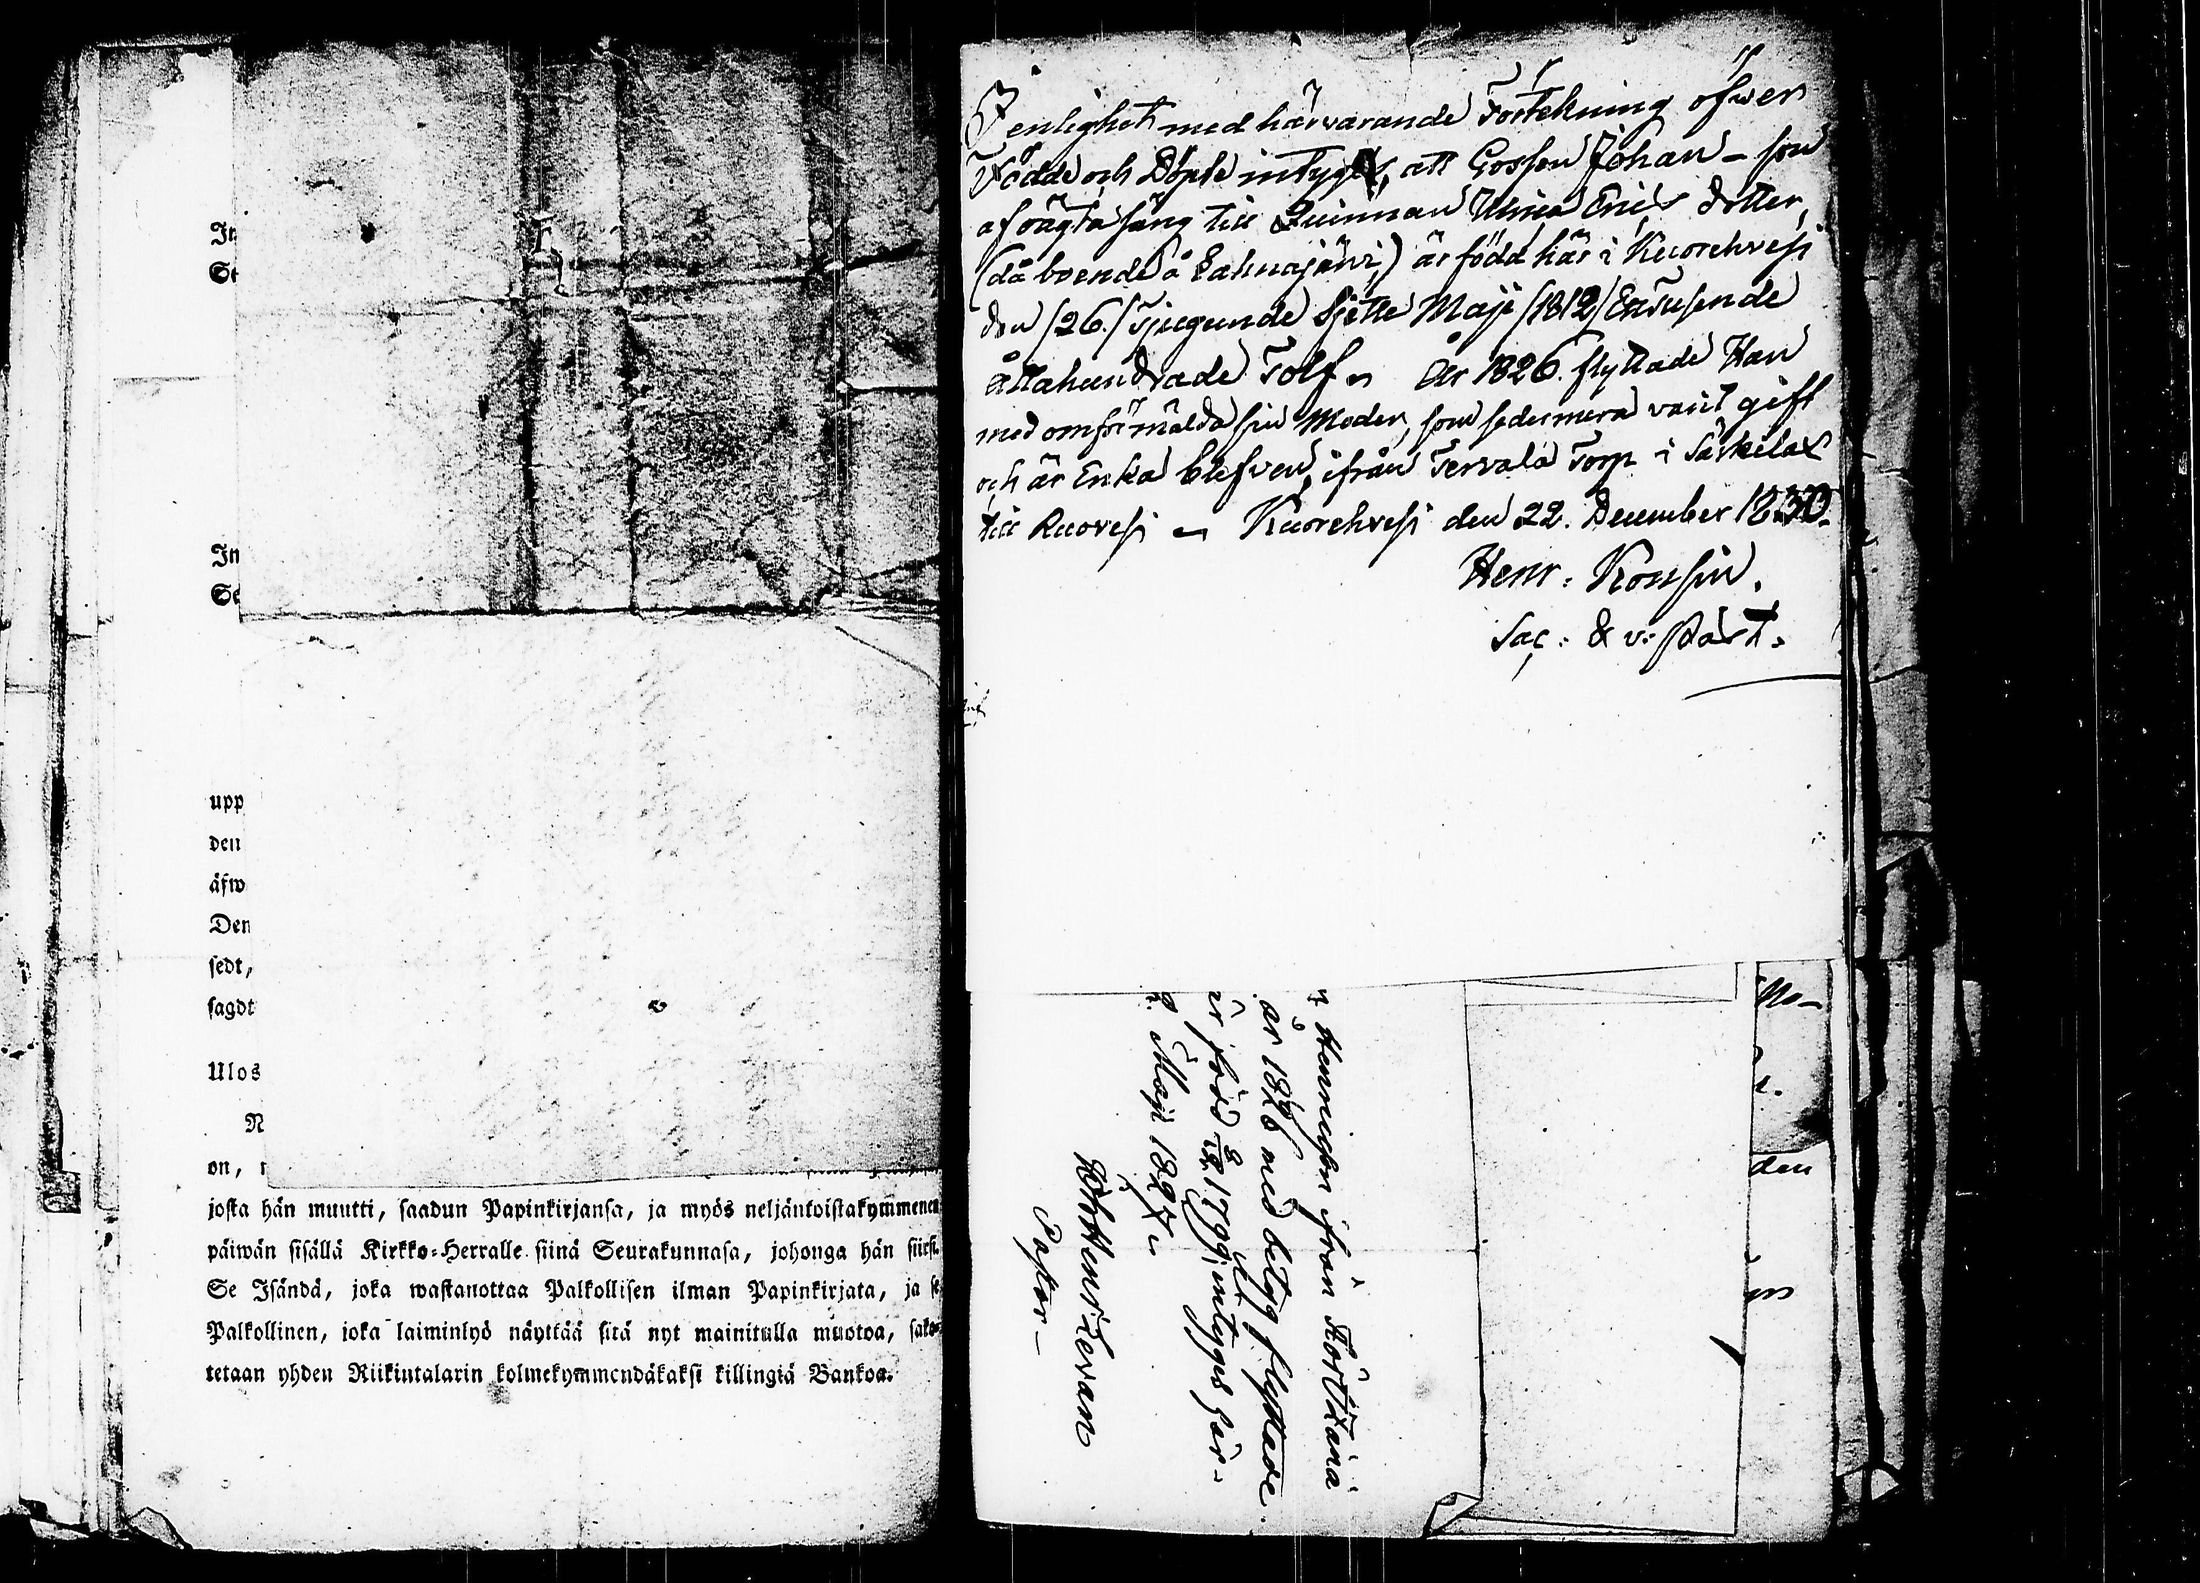 In
Se
In
Se
upp
den
äfw
Den
sedt,
sagdt
Ulos
N
on,
josta hän muutti, saadun Papinkirjansa, ja myös neljäntoistakymmenen
päiwän sisällä Kirkko-Herralle siinä Seurakunnasa, johonga hän siirsi.
Se Isändä, joka wastanottaa Palkollisen ilman Papinkirjata, ja se
Palkollinen, joka laiminlyö näyttää sitä nyt mainitulla muotoa, sako-
tetaan yhden Riikintalarin kolmekymmendäkaksi killingiä Bankoa.
I enlighet med härvarande Förtekning öfwer
Födde och Döpte intygas, att Gossen Johan – son
af oägta säng till Quinnan Ulrica Erics dotter,
(då boende å Lahnajärvi,) är född här i Kuorehvesi
den /26./ Tjugunde Sjette Maji /1812/ Ettusende
Åttahundrade Tolf. År 1826. flyttade Han
med omförmälda sin Moder, som sedermera varit gift
och är Enka blefven, ifrån Tervala Torp i Särkilax
till Ruovesi – Kuorehvesi den 22. December 1830.
Henr: Konsin.
Sac: & v: Past.
Henricson ifrån
år 1826 med betyg flyttade
är född 1799, intygas här-
Maji 1827.
Joh Henr Levan
Pastor –
No–
den